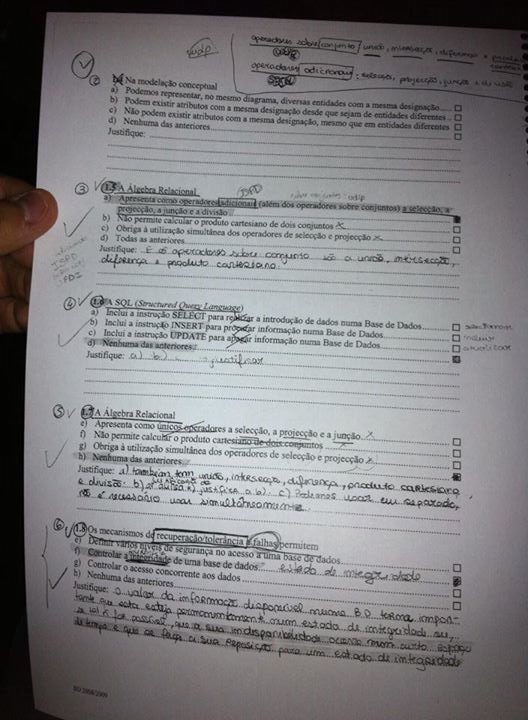 operadores sobre conjunto / união, intersecção, diferença e produto cartesiano
operadores adicionais: selecção, projecção, junção e divisão
udp
② Na modelação conceptual
a) Podemos representar, no mesmo diagrama, diversas entidades com a mesma designação....
b) Podem existir atributos com a mesma designação desde que sejam de entidades diferentes...
c) Não podem existir atributos com a mesma designação, mesmo que em entidades diferentes
d) Nenhuma das anteriores
Justifique:
③ 1.5 A Álgebra Relacional
a) Apresenta como operadores adicionais (além dos operadores sobre conjuntos) a selecção, a
projecção, a junção e a divisão
b) Não permite calcular o produto cartesiano de dois conjuntos x
c) Obriga à utilização simultânea dos operadores de selecção e projecção x
d) Todas as anteriores
Justifique: E os operadores sobre conjunto são a união, intersecção,
diferença e produto cartesiano.
④ 1.6 A SQL (Structured Query Language)
a) Inclui a instrução SELECT para realizar a introdução de dados numa Base de Dados
b) Inclui a instrução INSERT para procurar informação numa Base de Dados
c) Inclui a instrução UPDATE para apagar informação numa Base de Dados
atualizar
d) Nenhuma das anteriores
Justifique: a) b) justificar
⑤ 1.7 A Álgebra Relacional
e) Apresenta como únicos operadores a selecção, a projecção e a junção x
f) Não permite calcular o produto cartesiano de dois conjuntos
g) Obriga à utilização simultânea dos operadores de selecção e projecção x
h) Nenhuma das anteriores
Justifique: a) também tem união, intersecção, diferença, produto cartesiano
e divisão. b) justifica a a). c) Podemos usar em separado,
não é necessário usar simultâneamente
⑥ 1.8 Os mecanismos de recuperação/tolerância a falhas permitem
e) Definir vários níveis de segurança no acesso a uma base de dados
f) Controlar a integridade de uma base de dados estado de integridade
g) Controlar o acesso concorrente aos dados
h) Nenhuma das anteriores
Justifique: O valor da informação disponível numa B.D torna impor-
tante que esta esteja permanentemente num estado de integridade ou,
se tal não for possível, que a sua indisponibilidade ocorra num curto espaço
de tempo e que se faça a sua reposição para um estado de integridade
BD 2008/2009